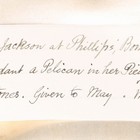 Jackson at Phillips', Bon
dant a Pelican in her Pie
ones. Given to May. W